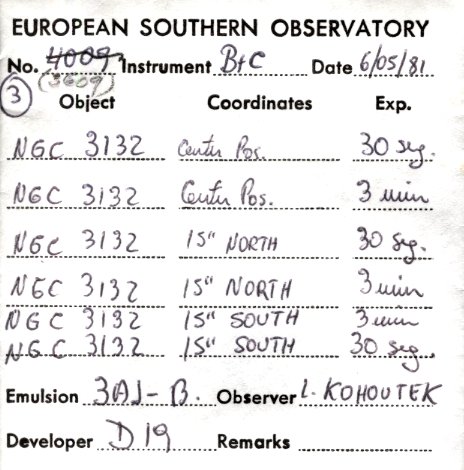 EUROPEAN SOUTHERN OBSERVATORY
No. 4009 Instrument B+C Date 6/05/81
(3609)
3 Object Coordinates Exp.
NGC 3132 Center Pos. 30 seg.
NGC 3132 Center Pos. 3 min
NGC 3132 15" NORTH 30 seg.
NGC 3132 15" NORTH 3 min
NGC 3132 15" SOUTH 3 min
NGC 3132 15" SOUTH 30 seg.
Emulsion 3AJ-B. Observer L. KOHOUTEK
Developer D19 Remarks